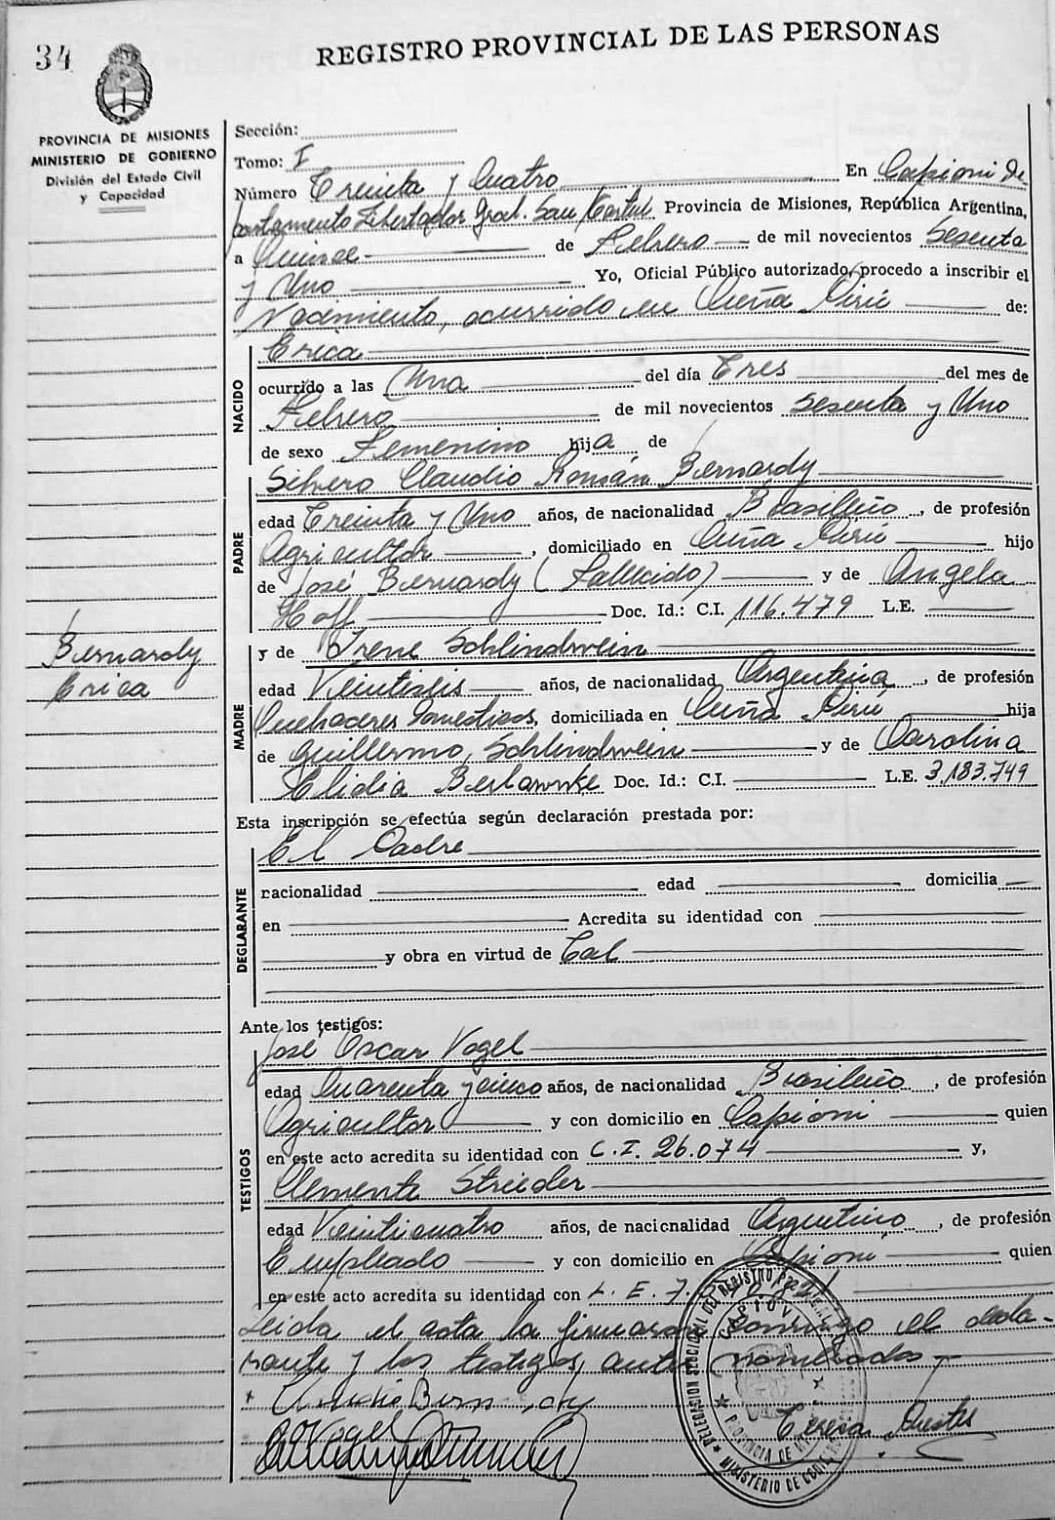 34
REGISTRO PROVINCIAL DE LAS PERSONAS
PROVINCIA DE MISIONES
MINISTERIO DE GOBIERNO
División del Estado Civil
y Capacidad
Sección:
Tomo: I
Número Treinta y Cuatro En Capioni De-
partamento Libertador Gral. San Martin Provincia de Misiones, República Argentina,
a Quince de Febrero de mil novecientos Sesenta
y Uno Yo, Oficial Público autorizado, procedo a inscribir el
Nacimiento, ocurrido en Cuña Pirú de:
NACIDO
Erica
ocurrido a las Una del día Tres del mes de
Febrero de mil novecientos Sesenta y Uno
de sexo Femenino hija de
Silvero Claudio Román Bernardy
PADRE
edad Treinta y Uno años, de nacionalidad Brasileño, de profesión
Agricultor, domiciliado en Cuña Pirú hijo
de José Bernardy (Fallecido) y de Angela
Hoff Doc. Id.: C.I. 116.479 L.E.
Bernardy
Erica
y de Irene Schlindwein
MADRE
edad Veintiseis años, de nacionalidad Argentina, de profesión
Quehaceres Domesticos, domiciliada en Cuña Pirú hija
de Guillermo Schlindwein y de Carolina
Elidia Doc. Id.: C.I. L.E. 3.183.749
Esta inscripción se efectúa según declaración prestada por:
DECLARANTE
El Padre
nacionalidad edad domicilia
en Acredita su identidad con
y obra en virtud de Tal
Ante los testigos:
TESTIGOS
José Oscar Vogel
edad Cuarenta y cinco años, de nacionalidad Brasileño, de profesión
Agricultor y con domicilio en Capioni quien
en este acto acredita su identidad con C.I. 26.074 y,
Clemente Strieder
edad Veinticuatro años, de nacionalidad Argentino, de profesión
Empleado y con domicilio en Capioni quien
en este acto acredita su identidad con L.E. 7.
Leida el acta la firmaran conmigo el decla-
rante y los testigos antes nombrados
Claudio Bernardy
Vogel
Teresa
DELEGACION SECCIONAL DEL REGISTRO
CAPIOVI
PROVINCIA DE
MINISTERIO DE